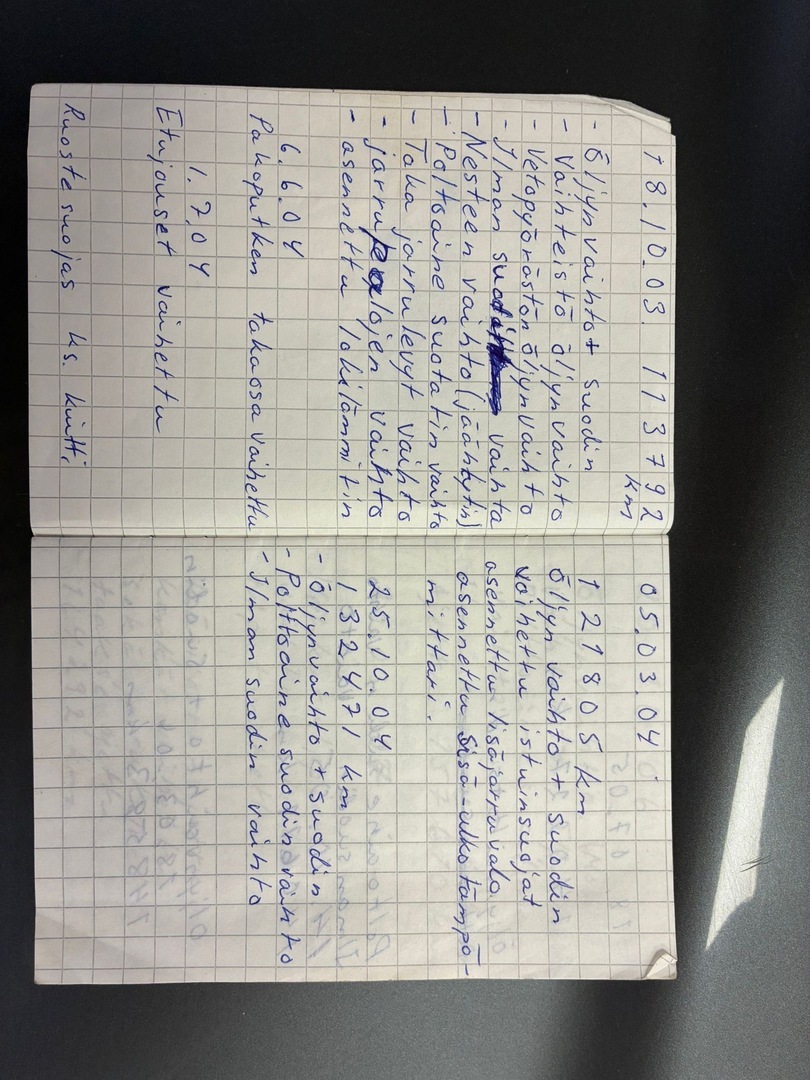 18.10.03. 113792
km
- Öljyn vaihto + suodin
- Vaihteistö öljyn vaihto
- Vetopyörästön öljyn vaihto
- Ilman vaihto
- Nesteen vaihto (jäähdytin)
- Poltoaine suotatin vaihto
- Taka jarrulevyt vaihto
- jarrupalojen vaihto
- asennettu lohkolämmitin
6.6.04
Pakoputken takaosa vaihettu
1.7.04
Etujouset vaihettu
Ruostesuojas ks. kuitti
05.03.04
121805 km
Öljyn vaihto + suodin
vaihettu istuinsuojat
asennettu lisäjarruvalo
asennettu sisä-ulko lämpö-
mittari.
25.10.04
132471 km
- Öljynvaihto + suodin
- Polttoaine suodin vaihto
- Ilman suodin vaihto